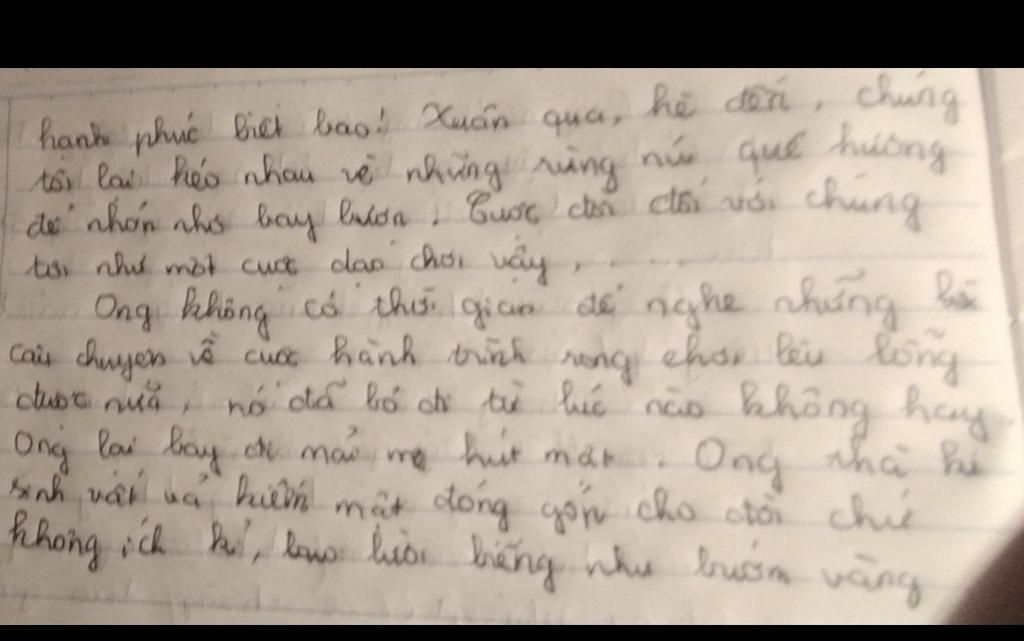 hạnh phúc biết bao! Xuân qua, hè đến, chúng
tôi lại kéo nhau về những rừng núi quê hương
để nhởn nhơ bay lượn. Cuộc đời đối với chúng
tôi như một cuộc dạo chơi vậy, . . . . .
Ong không có thời gian để nghe những
câu chuyện về cuộc hành trình rong chơi lêu lổng
được nữa, nó đã bỏ đi từ lúc nào không hay.
Ong lại bay đi mải mê hút mật. Ong thà hi
sinh vất vả kiếm mật đóng góp cho đời chứ
không ích kỉ, lao lười biếng như bướm vàng